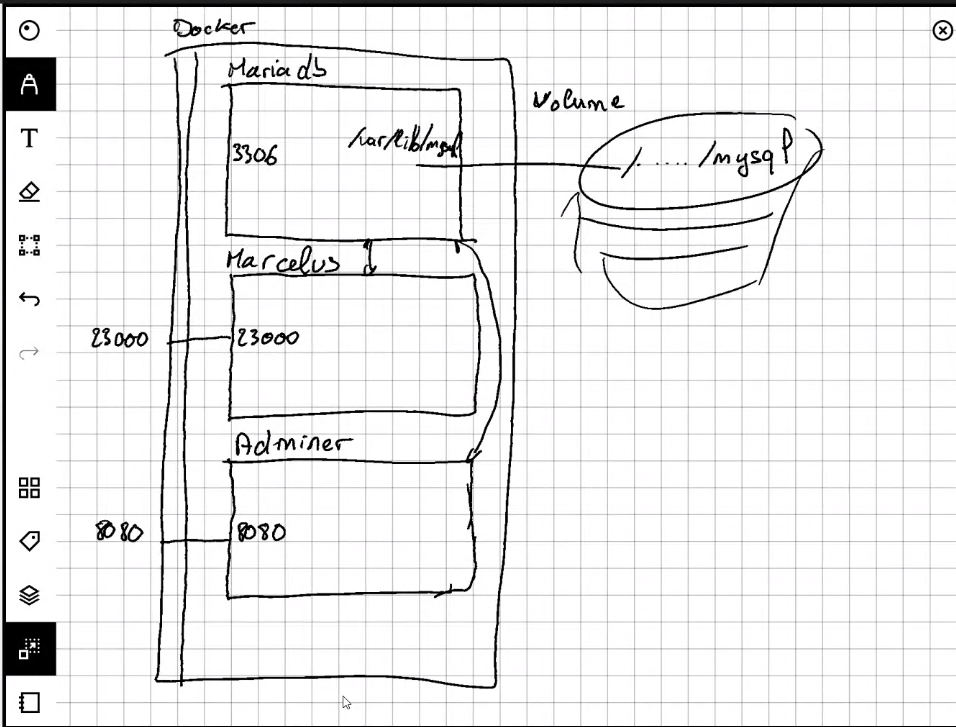 Docker
Mariadb
Volume
3306
/var/lib/mysql
/...../mysql
Marcelus
23000
23000
Adminer
8080
8080
T